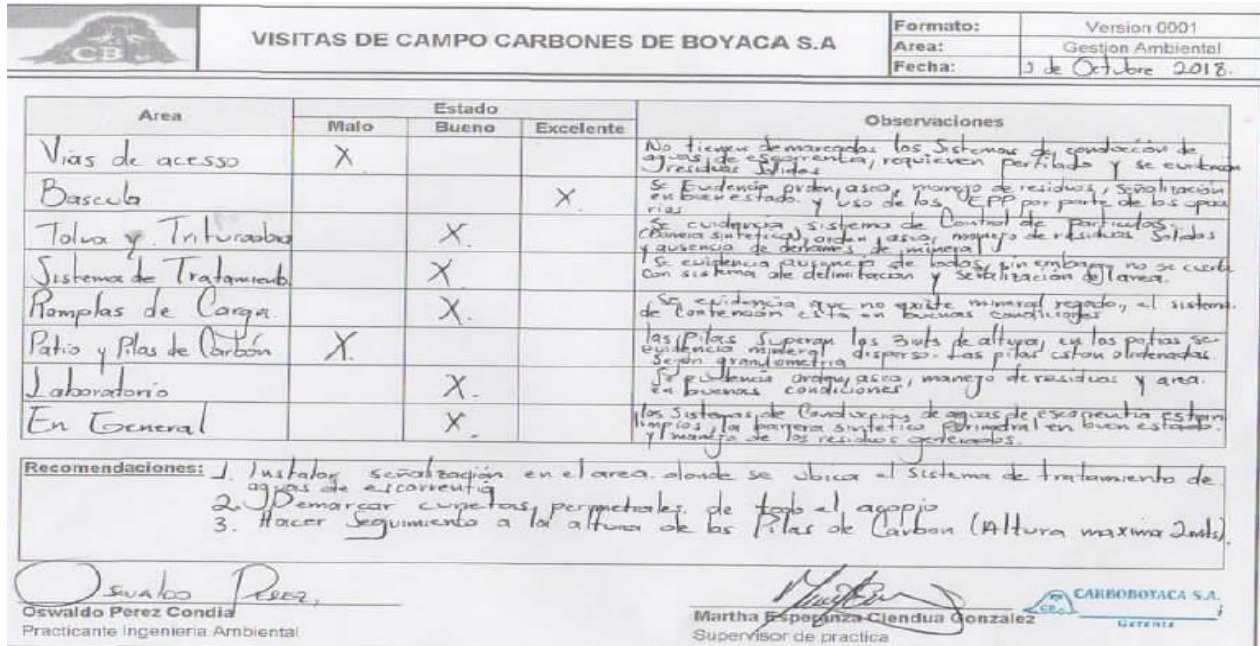 CB
VISITAS DE CAMPO CARBONES DE BOYACA S.A
Formato: Version 0001
Area: Gestion Ambiental
Fecha: de Octubre 2018.
Area Estado Observaciones
Malo Bueno Excelente
Vias de acesso X No tienen demarcados los Sistemas de conducción de
aguas de escorrentia, requieren perfilado y se evidencian
residuos Solidos
Bascula X Se Evidencia orden, aseo, manejo de residuos, Señalización
en buen estado. y uso de los EPP por parte de los opera
rios
Tolva y Trituradora X. Se evidencia sistema de Control de Particulas
(Barrera sintetica), orden aseo, manejo de residuos Solidos
y ausencia de derrames de mineral
Sistema de Tratamiento X Se evidencia ausencia de lodos, sin embargo no se cuenta
con sistema de delimitacion y señalización del area.
Ramplas de Carga. X. Se evidencia que no existe mineral regado, el sistema
de contención esta en buenas condiciones
Patio y Pilas de Carbón X. las Pilas Superan los 3mts de altura, en los patios se
evidencia mineral disperso. Las pilas estan ordenadas
Según granulometria
Laboratorio X. Se evidencia orden, aseo, manejo de residuos y area.
en buenas condiciones
En General X. los Sistemas de Conduccion de aguas de escorrentia estan
limpios, la barrera sintetico perimetral en buen estado.
y manejo de los residuos generados.
Recomendaciones: 1. Instalar señalización en el area. donde se ubica el Sistema de tratamiento de
aguas de escorrentia
2. Demarcar cunetas perimetrales de todo el acopio
3. Hacer Seguimiento a la altura de las Pilas de Carbon (Altura maxima 2mts).
Oswaldo Perez
Oswaldo Perez Condia
Practicante Ingenieria Ambiental
Martha Esperanza Ciendua Gonzalez
Supervisor de practica
CARBOBOYACA S.A.
Gerente